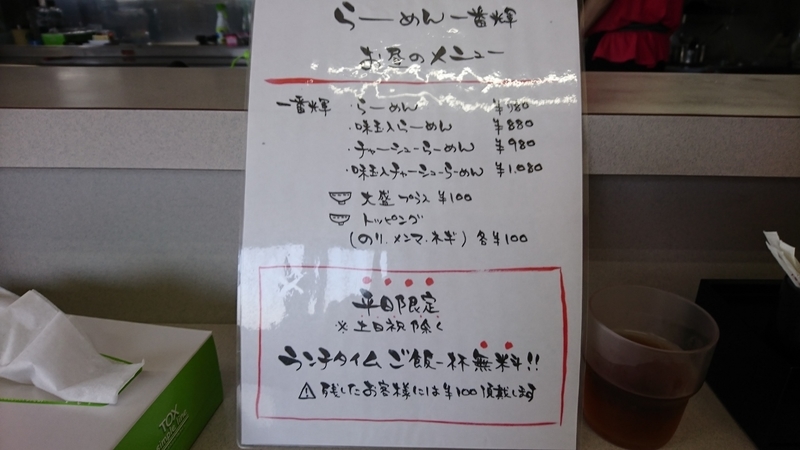 らーめん 一番輝
お昼のメニュー
一番輝 らーめん
・味玉入らーめん ¥880
・チャーシューらーめん ¥980
・味玉入チャーシューらーめん ¥1,080
大盛プラス ¥100
トッピング
(のり・メンマ・ネギ) 各¥100
平日限定
※土日祝除く
ランチタイム ご飯一杯 無料!!
残したお客様には¥100頂戴します
TOX
Simple Line